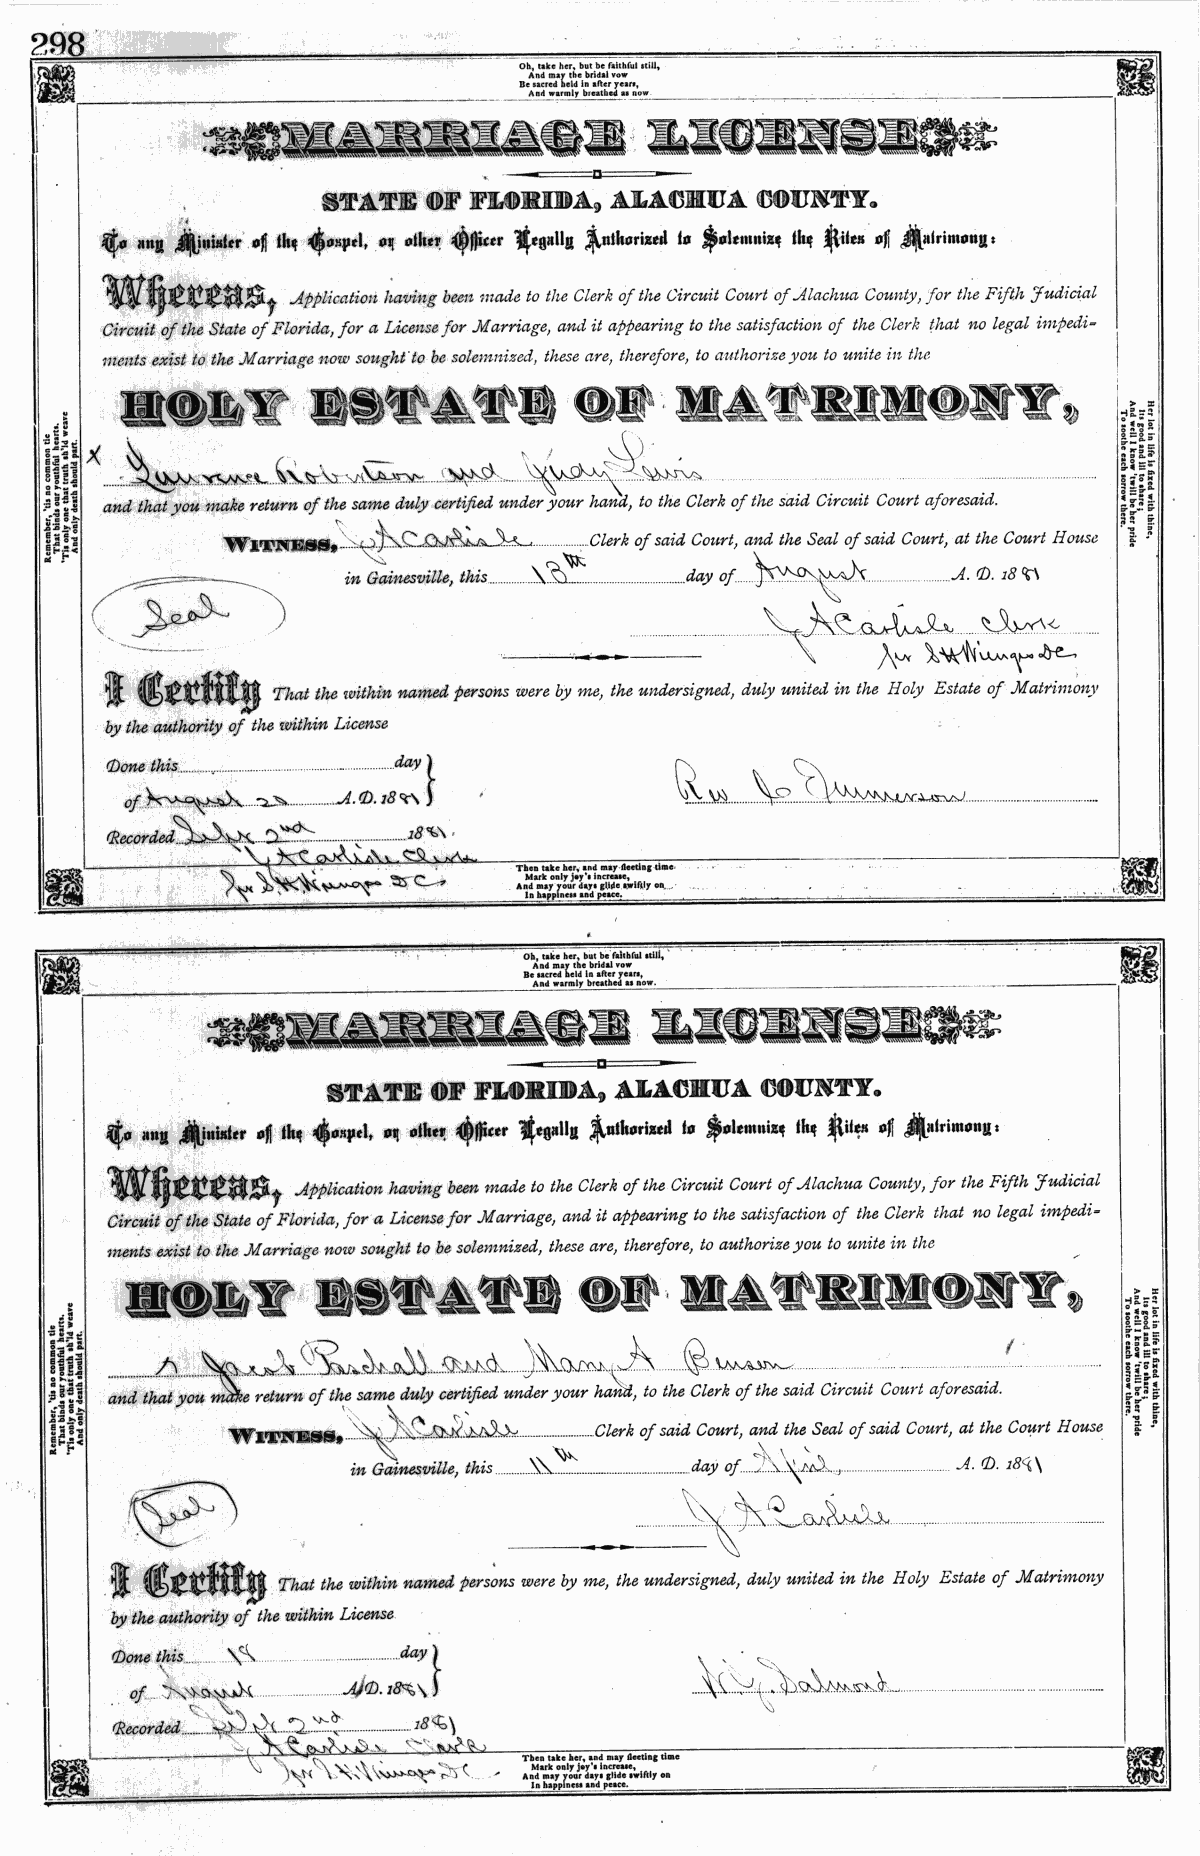 298
Oh, take her, but be faithful still,
And may the bridal vow
Be sacred held in after years,
And warmly breathed as now.
MARRIAGE LICENSE
STATE OF FLORIDA, ALACHUA COUNTY.
To any Minister of the Gospel, or other Officer Legally Authorized to Solemnize the Rites of Matrimony:
Whereas, Application having been made to the Clerk of the Circuit Court of Alachua County, for the Fifth Judicial
Circuit of the State of Florida, for a License for Marriage, and it appearing to the satisfaction of the Clerk that no legal impedi-
ments exist to the Marriage now sought to be solemnized, these are, therefore, to authorize you to unite in the
HOLY ESTATE OF MATRIMONY,
Remember, 'tis no common tie
That binds our youthful hearts.
'Tis only one that truth sh'ld weave
And only death should part.
Her lot in life is fixed with thine,
Its good and ill to share;
And well I know 'twill be her pride
To soothe each sorrow there.
x Laurence Robertson and Judy Lewis
and that you make return of the same duly certified under your hand, to the Clerk of the said Circuit Court aforesaid.
WITNESS, J A Carlisle Clerk of said Court, and the Seal of said Court, at the Court House
in Gainesville, this 13th day of August A. D. 1881
Seal
J A Carlisle Clerk
per S H Wienges DC
I Certify That the within named persons were by me, the undersigned, duly united in the Holy Estate of Matrimony
by the authority of the within License
Done this day
of August 20 A. D. 1881
Rev Emmerson
Recorded Sept 2nd 1881.
J A Carlisle Clerk
per S H Wienges DC
Then take her, and may fleeting time
Mark only joy's increase,
And may your days glide swiftly on
In happiness and peace.
Oh, take her, but be faithful still,
And may the bridal vow
Be sacred held in after years,
And warmly breathed as now.
MARRIAGE LICENSE
STATE OF FLORIDA, ALACHUA COUNTY.
To any Minister of the Gospel, or other Officer Legally Authorized to Solemnize the Rites of Matrimony:
Whereas, Application having been made to the Clerk of the Circuit Court of Alachua County, for the Fifth Judicial
Circuit of the State of Florida, for a License for Marriage, and it appearing to the satisfaction of the Clerk that no legal impedi-
ments exist to the Marriage now sought to be solemnized, these are, therefore, to authorize you to unite in the
HOLY ESTATE OF MATRIMONY,
Remember, 'tis no common tie
That binds our youthful hearts.
'Tis only one that truth sh'ld weave
And only death should part.
Her lot in life is fixed with thine,
Its good and ill to share;
And well I know 'twill be her pride
To soothe each sorrow there.
Jacob Paschall and Mary A Benson
and that you make return of the same duly certified under your hand, to the Clerk of the said Circuit Court aforesaid.
WITNESS, J A Carlisle Clerk of said Court, and the Seal of said Court, at the Court House
in Gainesville, this 11th day of April A. D. 1881
Seal
J A Carlisle
I Certify That the within named persons were by me, the undersigned, duly united in the Holy Estate of Matrimony
by the authority of the within License
Done this 18 day
of August A. D. 1881
Salmond
Recorded Sept 2nd 1881
J A Carlisle Clerk
per S H Wienges DC
Then take her, and may fleeting time
Mark only joy's increase,
And may your days glide swiftly on
In happiness and peace.